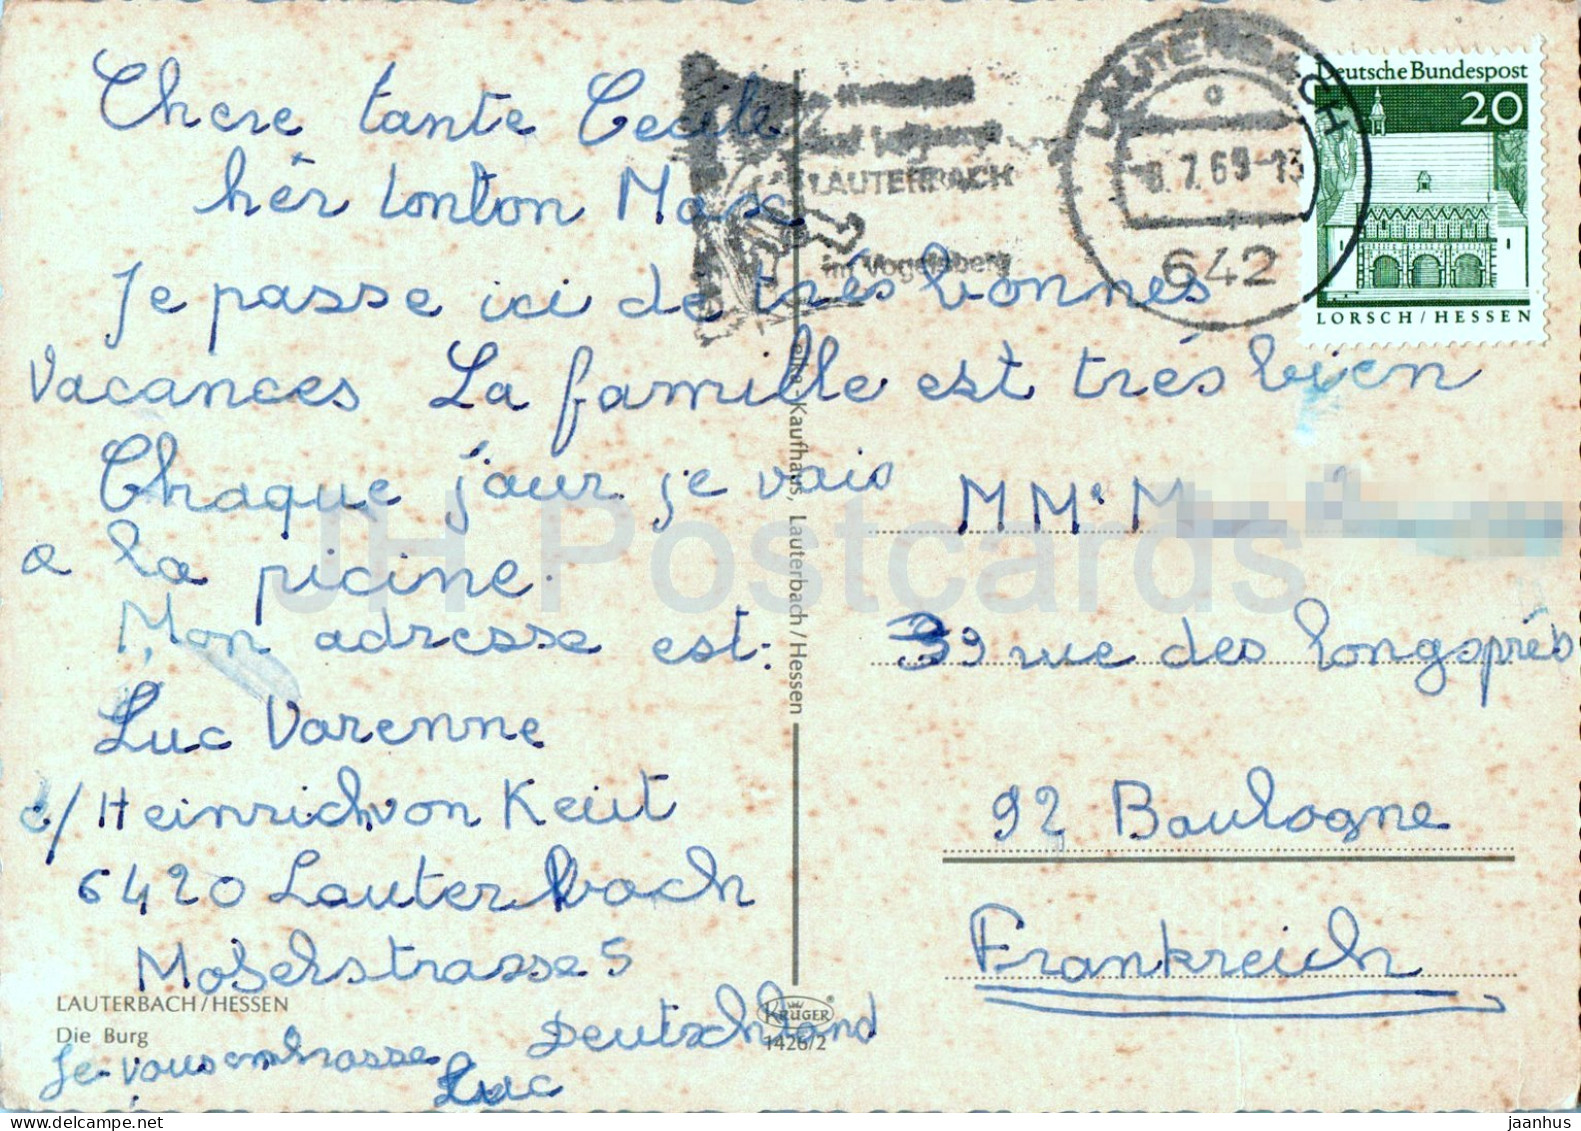 Chere tante Cecile
hér tonton Max
Je passe ici de trés bonnes
Vacances La famille est trés bien
Chaque jour je vais
a la picine.
Mon adresse est:
Luc Varenne
c/Heinrich von Keiit
6420 Lauterbach
Moserstrasse 5
Deutschland
Je vous embrasse
Luc
LAUTERBACH/HESSEN
Die Burg
elka-Kaufhaus, Lauterbach/Hessen
KRÜGER
1426/2
LAUTERBACH
im Vogelsberg
LAUTERBACH
8.7.69-13
642
Deutsche Bundespost
20
LORSCH/HESSEN
MMe M
39 rue des longsprés
92 Boulogne
Frankreich
JH Postcards
jaanhus